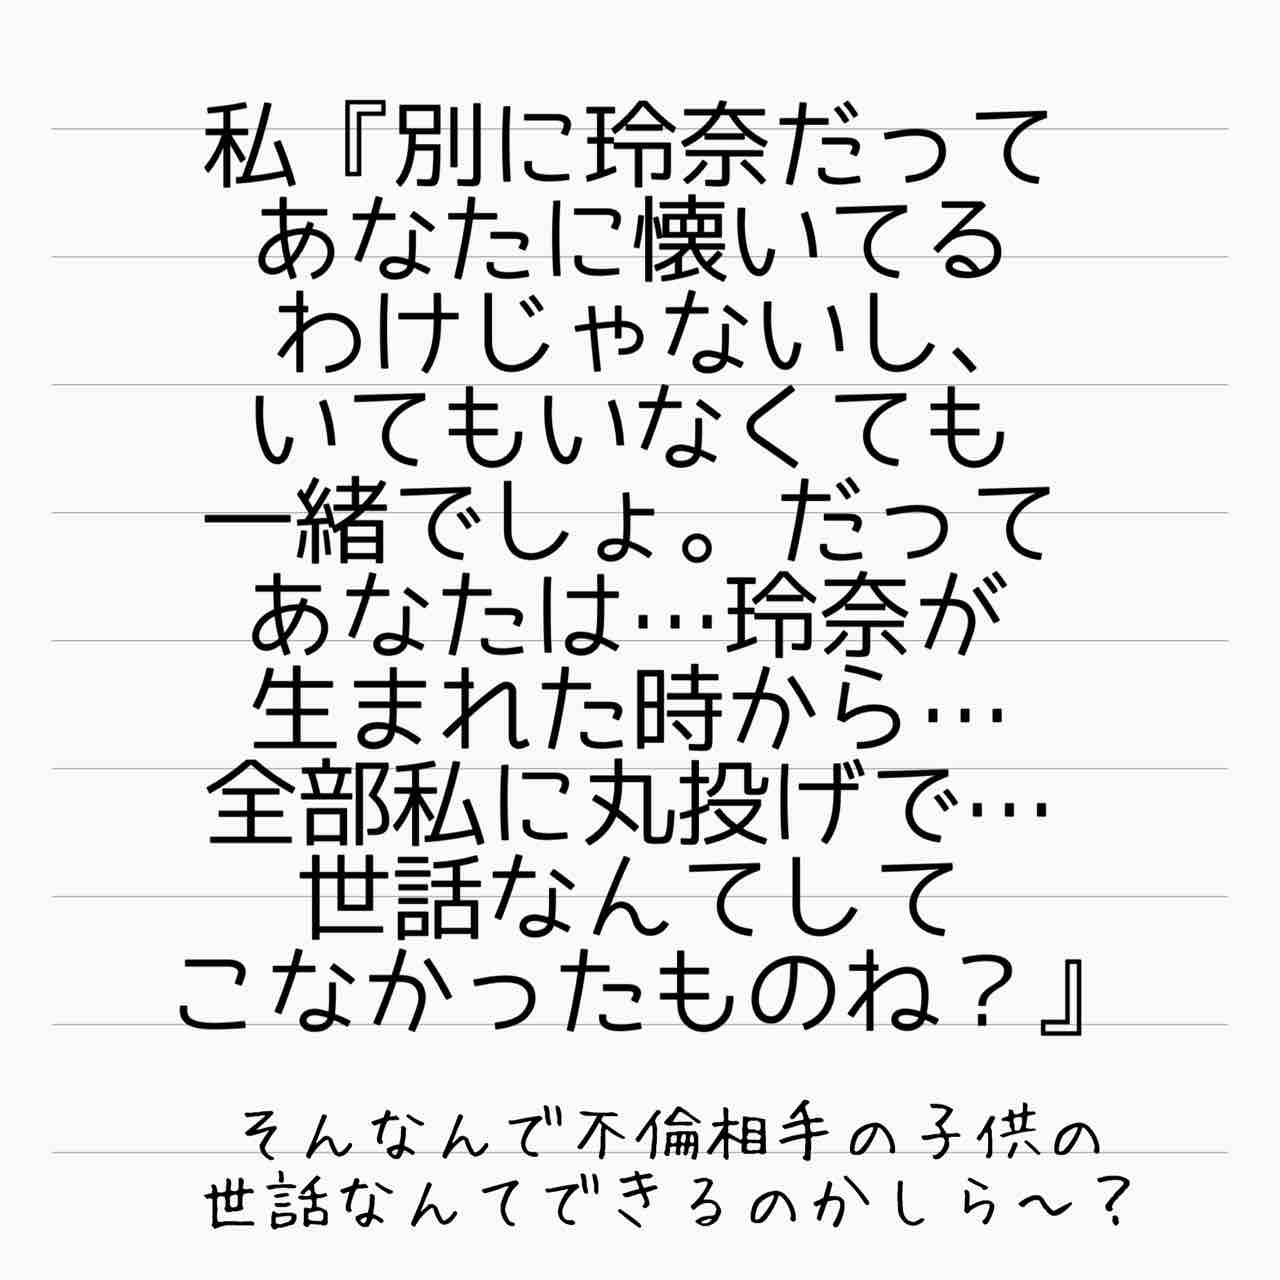 私『別に玲奈だって
あなたに懐いてる
わけじゃないし、
いてもいなくても
一緒でしょ。だって
あなたは…玲奈が
生まれた時から…
全部私に丸投げで…
世話なんてして
こなかったものね？』
そんなんで不倫相手の子供の
世話なんてできるのかしら〜？